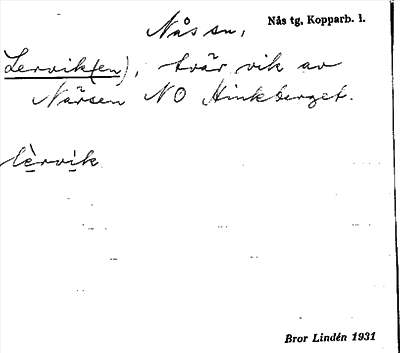 Nås sn,
Nås tg, Kopparb. l.
Lervik(en), tvär vik av
Närsen NO Hinkberget.
lèrvik
Bror Lindén 1931